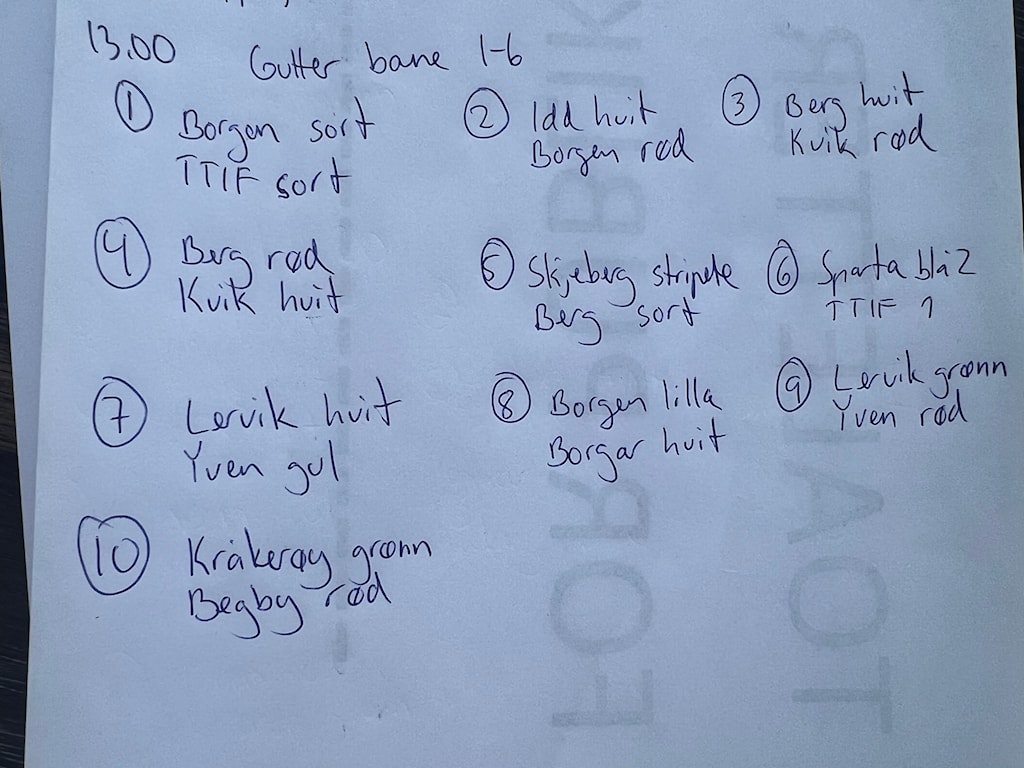 13.00 Gutter bane 1-6
① Borgen sort
TTIF sort
② Idd huit
Borgen rød
③ Berg huit
Kvik rød
④ Berg rød
Kvik huit
⑤ Skjeberg stripete
Berg sort
⑥ Sparta blå 2
TTIF 1
⑦ Lervik huit
Yven gul
⑧ Borgen lilla
Borgar huit
⑨ Lervik grønn
Yven rød
⑩ Kråkerøy grønn
Begby rød